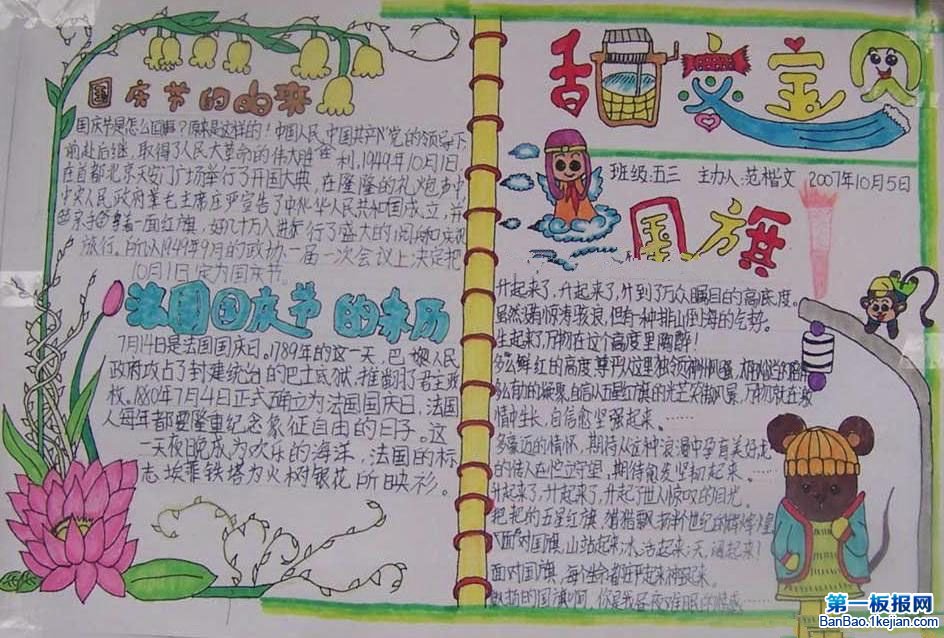 国庆节的由来
国庆节是怎么回事？原来是这样的！中国人民中国共产党的领导下
前赴后继，取得了人民大革命的伟大胜利，1949年10月1日
在首都北京天安门广场举行了开国大典，在隆隆的礼炮声中
中央人民政府毛主席庄严宣告了中华人民共和国成立，并
亲手升着一面红旗，
旅行。所以1949年9月的政协一届一次会议上决定把
10月1日定为国庆节。
法国国庆节的来历
7月14日是法国国庆日。1789年的这一天，巴黎人民
政府攻占了封建统治的巴士底狱，推翻了君主政
权，1880年7月4日正式确立为法国国庆日，法国
人每年都要隆重纪念象征自由的日子。这
一天夜晚成为欢乐的海洋，法国的标
志埃菲铁塔为火树银花所映衫。
甜蜜宝贝
班级:五三 主办人:范楷文 2007年10月5日
国旗
升起来了，升起来了，升到了万众瞩目的高底度。
虽然没有惊涛骇浪，但有一种排山倒海的气势。
升起来了，万物在这个高度里陶醉！
多么鲜红的高度
情中生长，自信愈坚强起来......
多豪迈的情怀，期待从这种浪漫中孕育美好
期待愈发坚韧起来......
升起来了，升起来了，升起了世人惊叹的目光。
把把的五星红旗，猎猎飘扬
面对国旗，山站起来，水活起来，天通起来！
面对国旗，每个生命都庄严起来
第一板报网
BanBao.1kejian.com